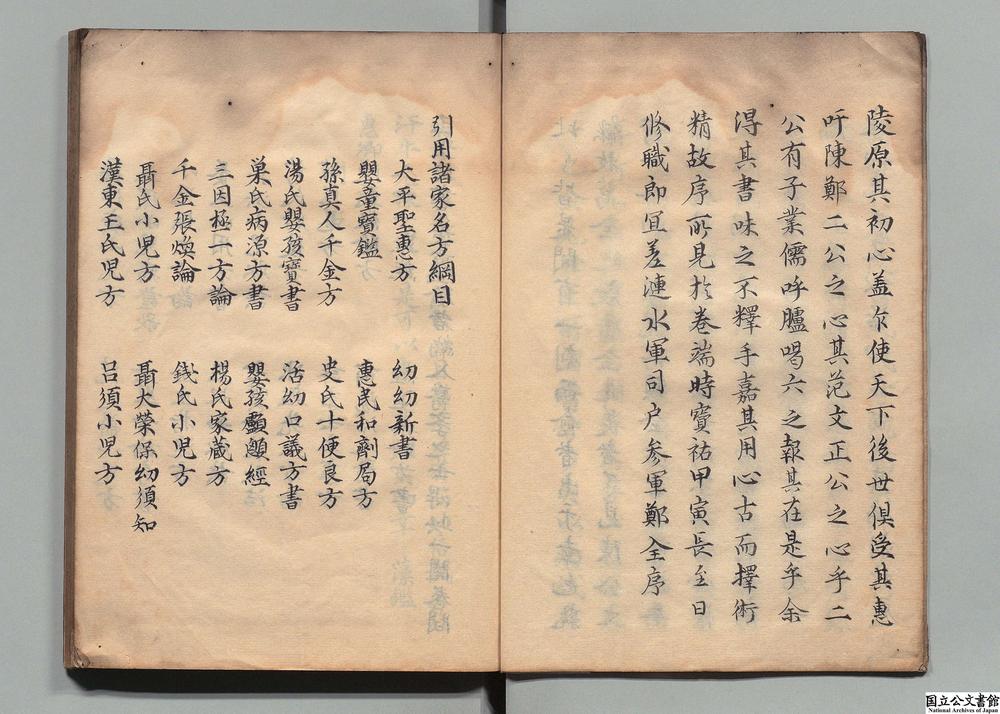 陵原其初心盖欲使天下後世俱受其惠
吁陳鄭二公之心其范文正公之心乎二
公有子業儒呼臚喝六之報其在是乎余
得其書味之不釋手嘉其用心古而擇術
精故序所見於卷端時寶祐甲寅長至日
修職郎宜差漣水軍司户參軍鄭全序
引用諸家名方綱目
大平聖惠方 幼幼新書
嬰童寶鑑 惠民和劑局方
孫真人千金方 史氏十便良方
湯氏嬰孩寶書 活幼口議方書
巢氏病源方書 嬰孩顱顖經
三因極一方論 楊氏家藏方
千金張煥論 錢氏小児方
聶氏小児方 聶大榮保幼須知
漢東王氏児方 吕須小児方
国立公文書館
National Archives of Japan